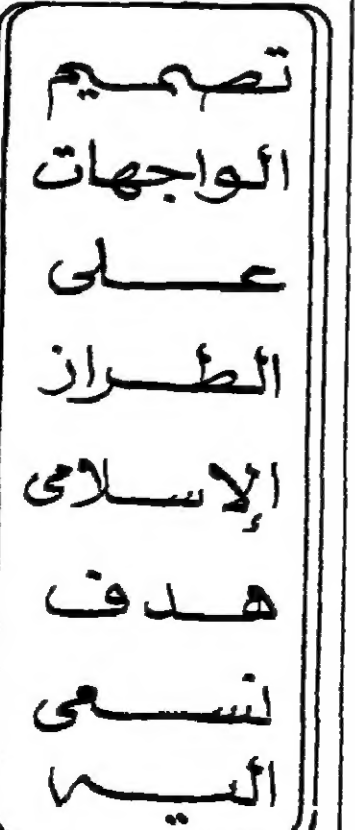 تصميم
الواجهات
على
الطراز
الإسلامى
هدف
نسعى
اليه